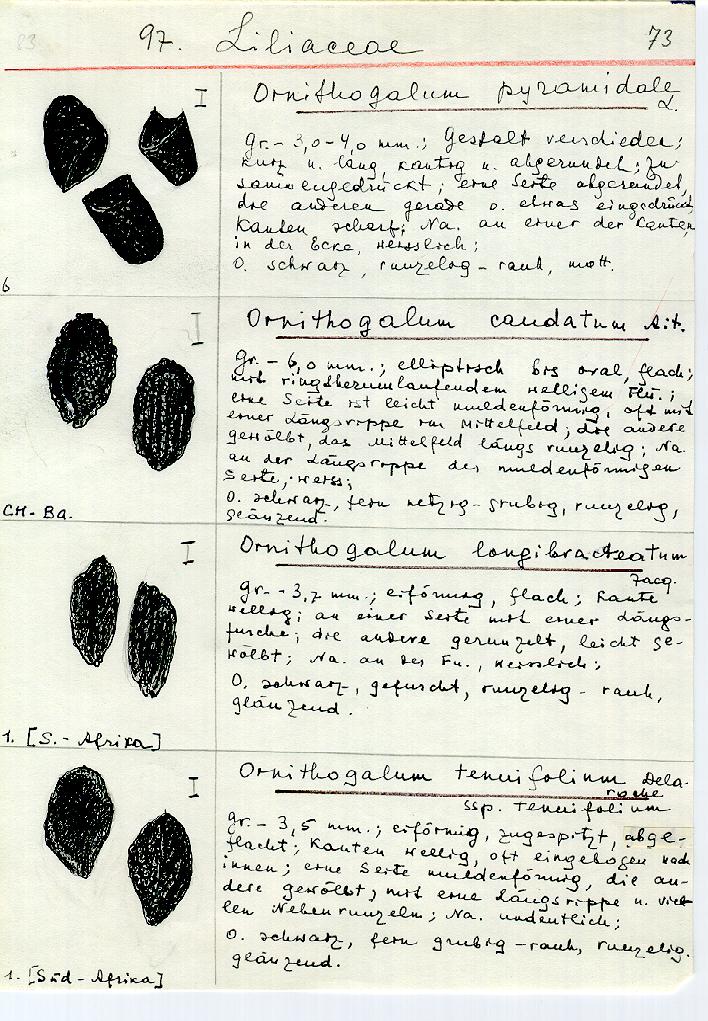 83 97. Liliaceae 73
Ornithogalum pyramidale
L.
gr. - 3,0-4,0 mm.; Gestalt verschieden;
kurz u. lang, kantig u. abgerundet; zu-
sammengedrückt; eine Seite abgerundet,
die anderen gerade o. etwas eingedrückt,
Kanten scharf; Na. an einer der Kanten,
in der Ecke, weisslich;
O. schwarz, runzelig-rauh, matt.
6
Ornithogalum caudatum Ait.
gr. - 6,0 mm.; elliptisch bis oval, flach;
mit ringsherumlaufendem welligem Flü.;
eine Seite ist leicht muldenförmig, oft mit
einer Längsrippe im Mittelfeld; die andere
gewölbt, das Mittelfeld längs runzelig; Na.
an der Längsrippe der muldenförmigen
Seite, weiss;
O. schwarz, fein netzig-grubig, runzelig,
glänzend.
CH-Ba.
Ornithogalum longibracteatum
Jacq.
gr. - 3,7 mm.; eiförmig, flach; Kante
wellig; an einer Seite mit einer Längs-
furche; die andere gerunzelt, leicht ge-
wölbt; Na. an der Fu., weisslich;
O. schwarz, gefurcht, runzelig-rauh,
glänzend.
1. [S.-Afrika]
Ornithogalum tenuifolium Dela-
roche
ssp. tenuifolium
gr. - 3,5 mm.; eiförmig, zugespitzt, abge-
flacht; Kanten wellig, oft eingebogen nach
innen; eine Seite muldenförmig, die an-
dere gewölbt, mit eine Längsrippe u. vie-
len Nebenrunzeln; Na. undeutlich;
O. schwarz, fein grubig-rauh, runzelig.
glänzend.
1. [Süd-Afrika]